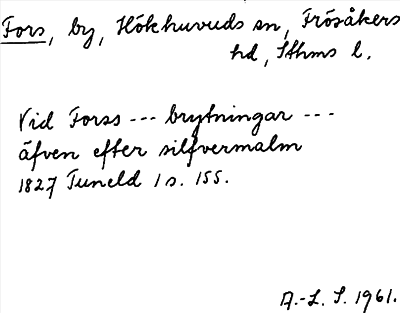 Fors, by, Hökhuvuds sn, Frösåkers
hd, Sthms l.
Vid Forss --- brytningar ---
äfven efter silfvermalm
1827 Tuneld 1 s. 155.
A.-L. S. 1961.